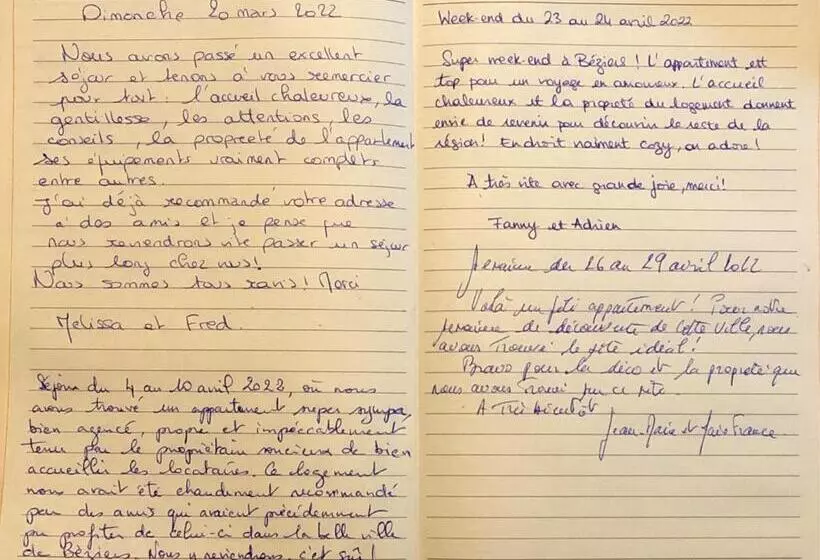 Dimanche 20 mars 2022
Nous avons passé un excellent
séjour et tenons à vous remercier
pour tout : l'accueil chaleureux, la
gentillesse, les attentions, les
conseils, la propreté de l'appartement
ses équipements vraiment complets
entre autres.
J'ai déjà recommandé votre adresse
à des amis et je pense que
nous reviendrons vite passer un séjour
plus long chez vous!
Nous sommes tous ravis! Merci
Melissa et Fred.
Séjour du 4 au 10 avril 2022, où nous
avons trouvé un appartement super sympa,
bien agencé, propre et impeccablement
tenu par le propriétaire soucieux de bien
accueillir les locataires. Ce logement
nous avait été chaudement recommandé
par des amis qui avaient précédemment
pu profiter de celui-ci dans la belle ville
de Béziers. Nous y reviendrons, c'est sûr!
Week-end du 23 au 24 avril 2022
Super week-end à Béziers! L'appartement est
top pour un voyage en amoureux. L'accueil
chaleureux et la propreté du logement donnent
envie de revenir pour découvrir le reste de la
région! Endroit vraiment cozy, on adore!
A très vite avec grande joie, merci!
Fanny et Adrien
semaine du 26 au 29 avril 2022
Voilà un appartement! Pour notre
semaine de découverte de cette ville, nous
avons trouvé le gîte idéal!
Bravo pour la déco et la propreté que
nous avons trouvé
A Très bientôt
Jean-Marie et Marie France